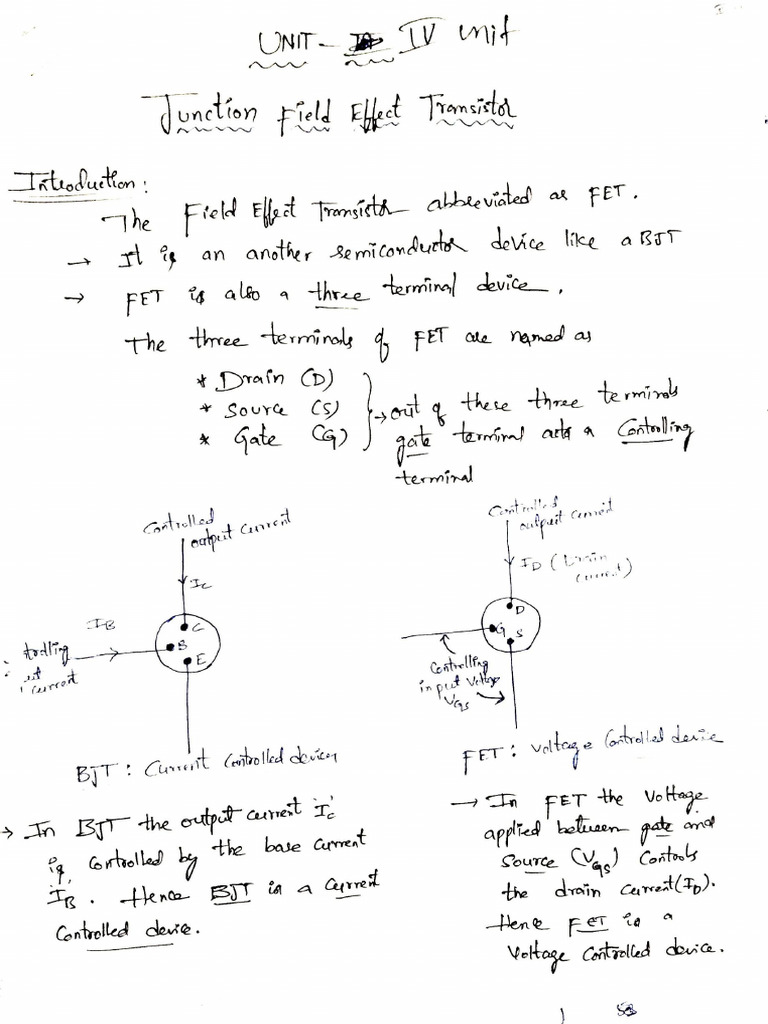 UNIT - IV unit
Junction Field Effect Transistor
Introduction:
The Field Effect Transistor abbreviated as FET.
→ It is an another semiconductor device like a BJT
→ FET is also a three terminal device.
The three terminals of FET are named as
* Drain (D)
* Source (S)
* Gate (G)
→ out of these three terminals
gate terminal acts a Controlling
terminal
Controlled
output current
Ic
IB
C
B
E
current
BJT : Current Controlled device
→ In BJT the output current Ic
is controlled by the base current
IB. Hence BJT is a current
Controlled device.
Controlled
output current
ID (Drain
current)
D
G
S
Controlling
input voltage
VGS
FET : Voltage Controlled device
→ In FET the Voltage
applied between gate and
Source (VGS) Controls
the drain current (ID).
Hence FET is a
Voltage Controlled device.